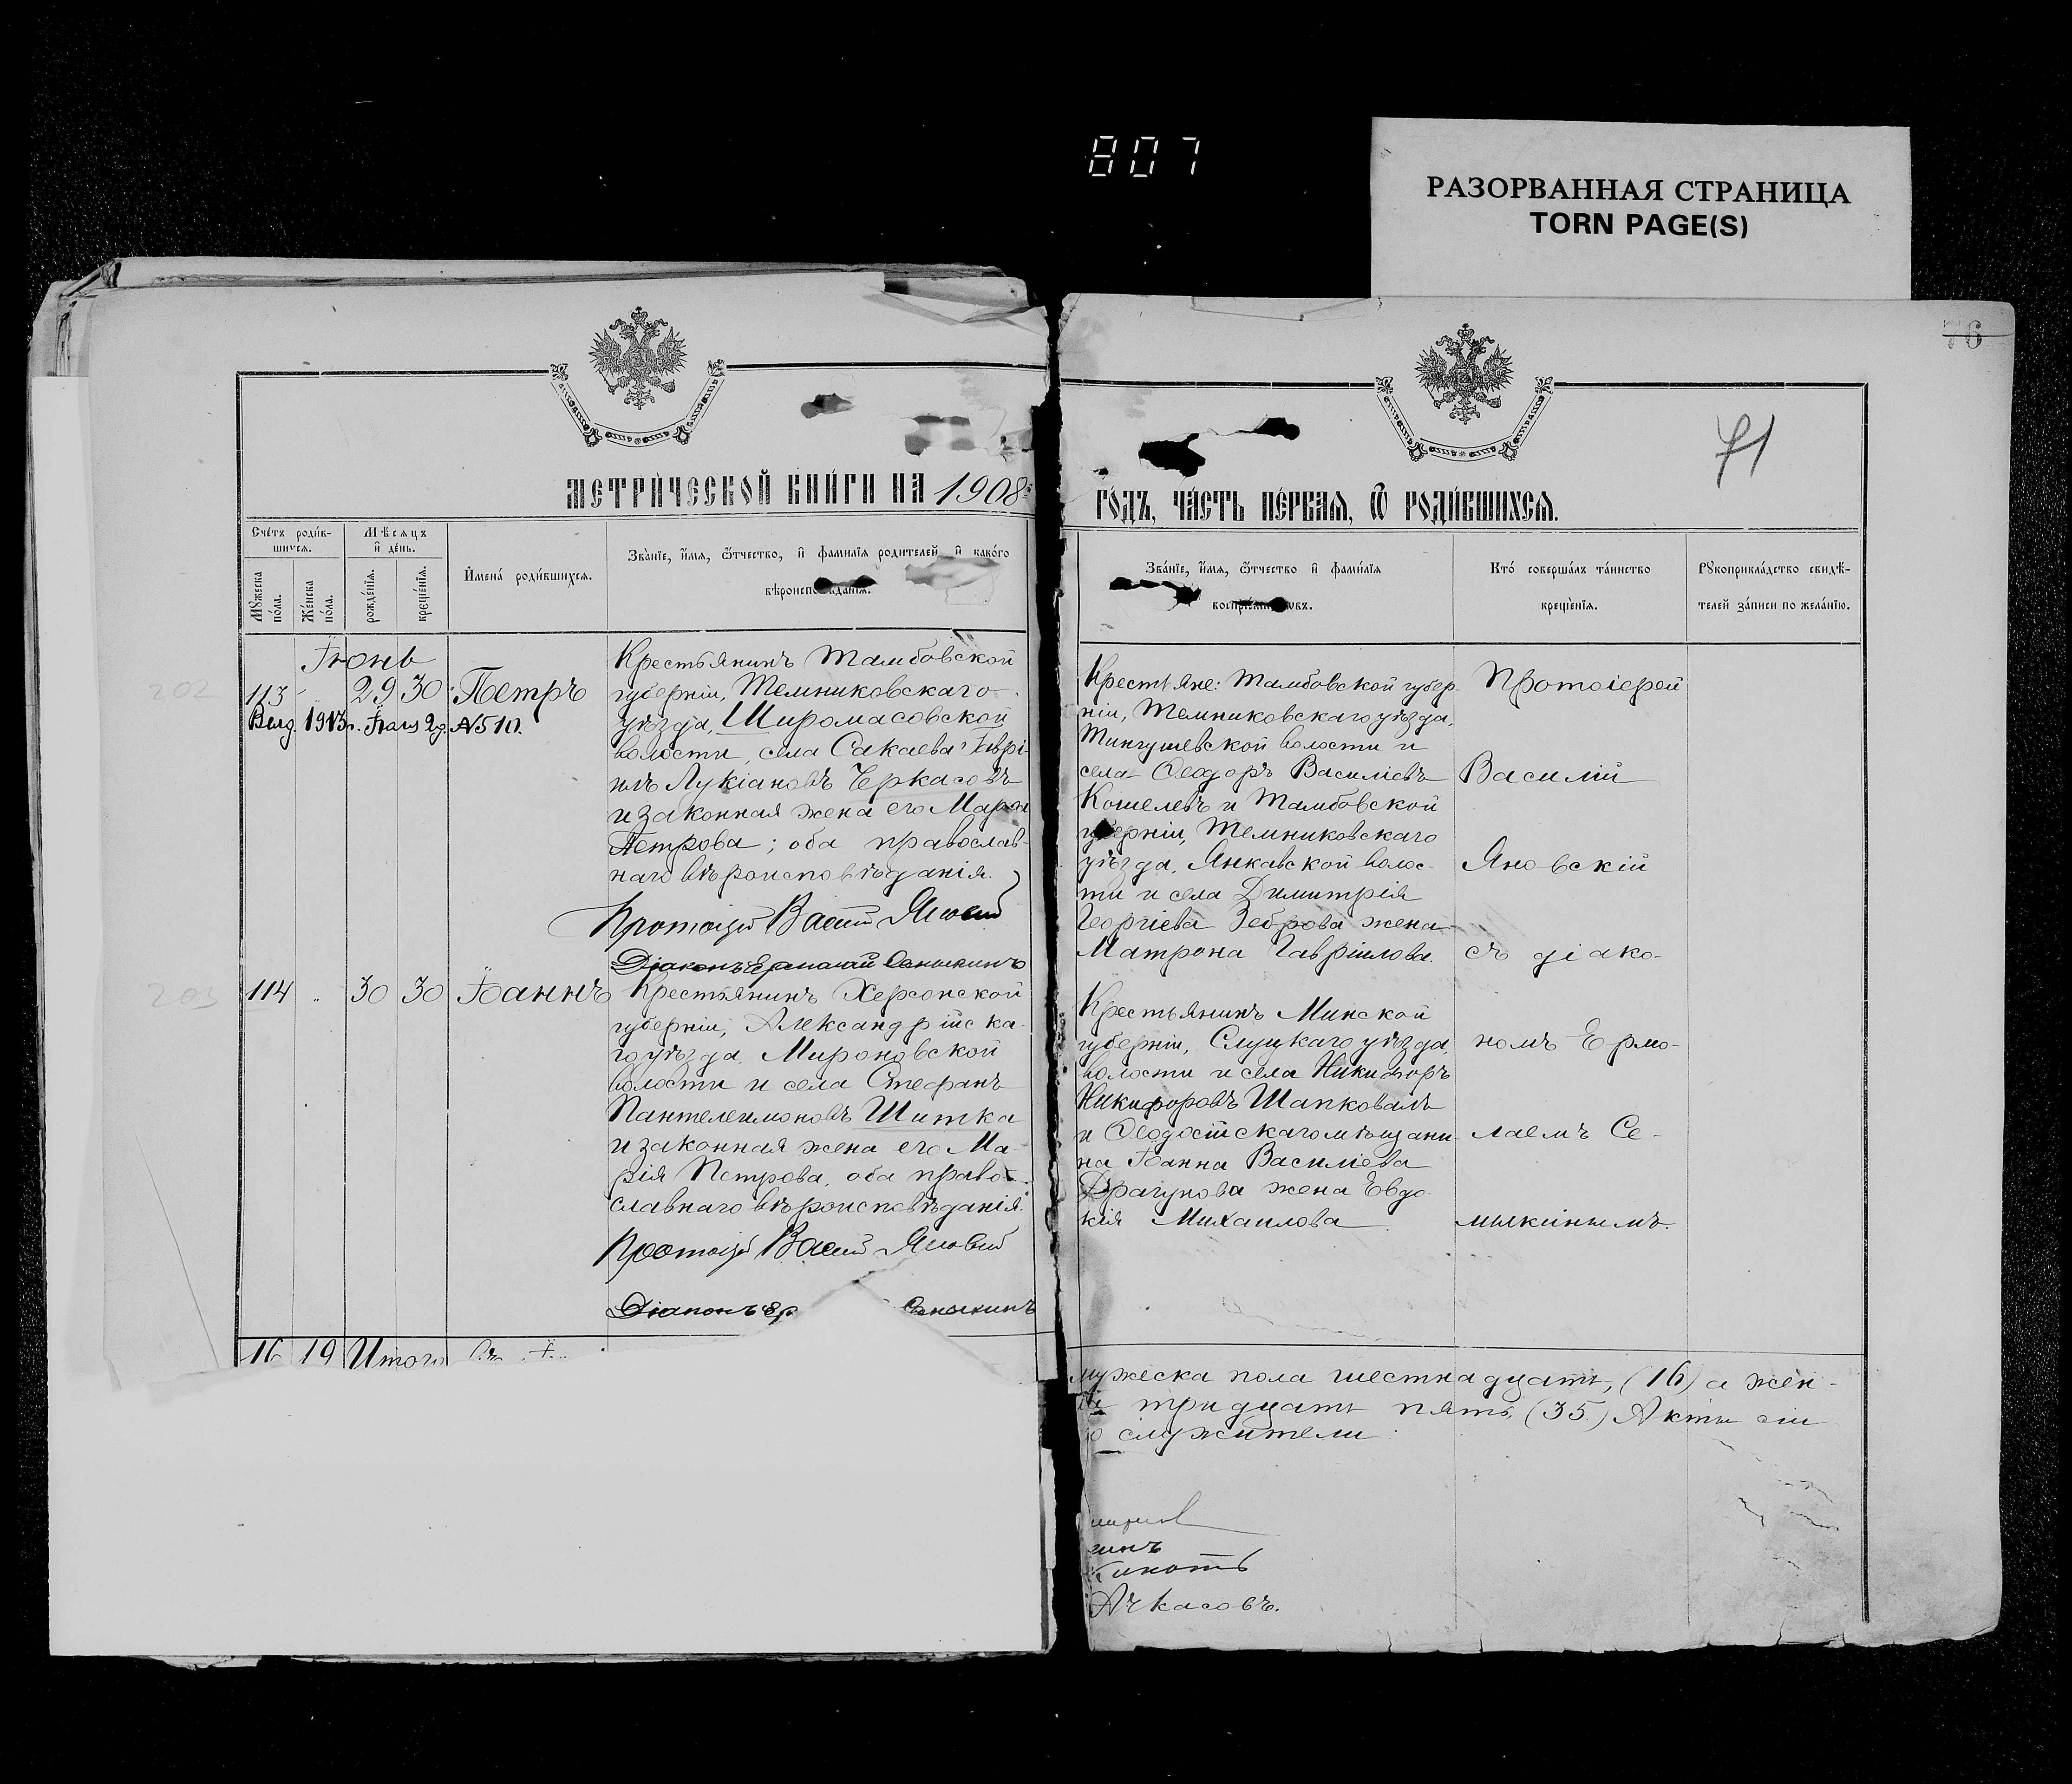 807
РАЗОРВАННАЯ СТРАНИЦА
TORN PAGE(S)
76
71
МЕТРИ́ЧЕСКОЙ КНИ́ГИ НА 1908
ГО́ДЪ, ЧА́СТЬ ПЕ́РВАЯ, Ѿ РОДИ́ВШИХСЯ.
Сче́тъ роди́в-
шихся.
Мѣ́сяцъ
и҆ де́нь.
Мꙋ́жеска по́ла.
Же́нска по́ла.
рожде́нїѧ.
креще́нїѧ.
И҆мена̀ роди́вшихся.
Зва̀нїе, и҆́мѧ, ѻ҆́тчество, и҆ фамилїѧ родителей и҆ како́го
вѣроисповѣданїѧ.
Зва́нїе, и҆́мѧ, ѻ҆́тчество и҆ фами́лїѧ
воспрїе́мниковъ.
Кто́ соверша́лъ та́инство
креще́нїѧ.
Рꙋкоприкла́дство свидѣ́-
телей за́писи по жела́нїю.
202
Іюнь
113 " 29 30 Петръ
1913г. №510.
Крестьянинъ Тамбовской
губерніи, Темниковскаго
уѣзда, Широмасовской
волости, села Сакаева Гаврі-
илъ Лукіановъ Черкасовъ
и законная жена его Марѳа
Петрова; оба православ-
наго вѣроисповѣданія.
Протоіерей Василій Яновскій
Діаконъ Ермолай Семыкинъ
Крестьяне: Тамбовской губер-
ніи, Темниковскаго уѣзда,
волости и
села Ѳеодоръ Василіевъ
Кошелевъ и Тамбовской
губерніи, Темниковскаго
уѣзда, Янкавской волос-
ти и села Димитрія
Георгіева Зеброва жена
Матрона Гавріилова.
Протоіерей
Василій
Яновскій
съ діако-
номъ Ермо-
лаемъ Се-
мыкинымъ.
203
114 " 30 30 Іоаннъ
Крестьянинъ Херсонской
губерніи, Александрійска-
го уѣзда, Мироновской
волости и села Стефанъ
Пантелеимоновъ Шитка
и законная жена его Ма-
рія Петрова, оба право-
славнаго вѣроисповѣданія.
Протоіерей Василій Яновскій
Діаконъ Ер Семыкинъ
Крестьянинъ Минской
губерніи, Слуцкаго уѣзда,
волости и села Никифоръ
Никифоровъ Шапковалъ
и Ѳеодосійскаго мѣщани-
на Іоанна Василіева
Драгунова жена Евдо-
кія Михаилова
16 19 Итого
мужеска пола шестнадцать, (16) а жен-
тридцать пять, (35) Акты сіи
служители:
Ачкасовъ.